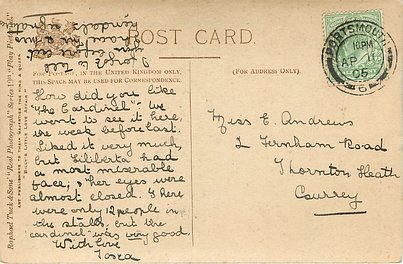 POST CARD.
FOR POSTAGE IN THE UNITED KINGDOM ONLY,
THIS SPACE MAY BE USED FOR CORRESPONDENCE.
(FOR ADDRESS ONLY)
How did you like
"the Cardinal". We
went to see it here,
the week before last.
Liked it very much,
but Filiberta had
a most miserable
face; & her eyes were
almost closed. There
were only 12 people in
the stalls, but the
cardinal was very good.
With love
Tosca
Miss C. Andrews
2 Fernham Road
Thornton Heath
Surrey
PORTSMOUTH
AP 11
05
6
Raphael Tuck & Sons' "Real Photograph" Series
ART PUBLISHERS TO THEIR MAJESTIES THE KING & QUEEN.